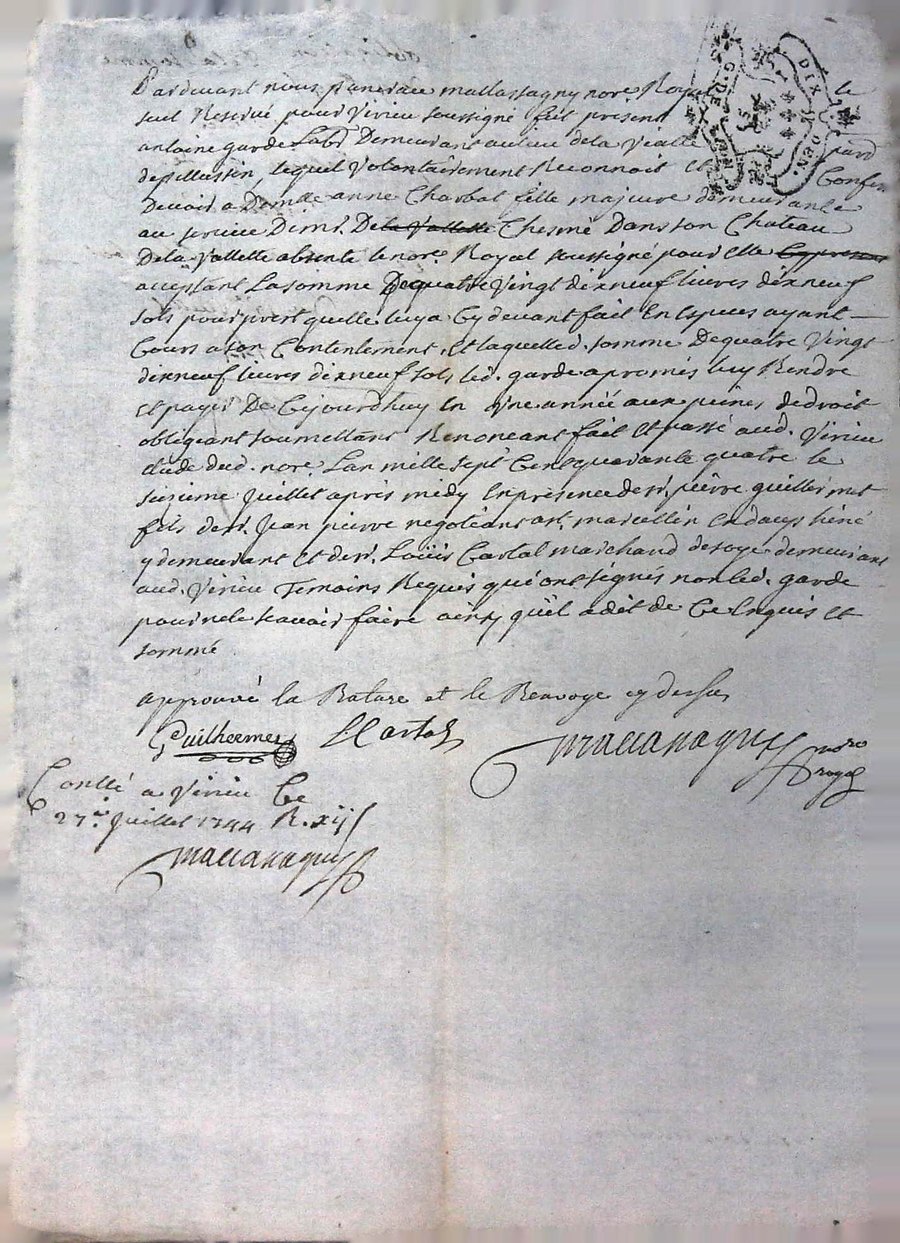 Pardevant nous françois mallassagny nore. Royal le
seul Reservé pour virieu soussigné fut present
antoine garde Labr Demeurant au lieu de la Vialle pard
de pellussin, lequel volontairement Reconnoit et Confesse
Devoir a Demlle anne Charbat fille majeure demeurante
au service Dimr. De la Vallette Chesme Dans son Chateau
De la Vallette absente le nore. Royal soussigné pour elle
acceptant La somme De quatre Vingt dix neuf livres dix neuf
sols pour prest quelle luy a Cy devant fait En Especes ayant
Cours a son Contentement, Et laquelle d. somme De quatre Vingt
dix neuf livres dix neuf sols led. garde a promis luy Rendre
et payer De Cejourdhuy en une année aux peines de droit
obligeant soumettant Renonceant fait et passé aud. Virieu
Etude dud. nore. Lan mille sept Cent quarante quatre le
sixieme Juillet apres midy En presence de sr. pierre guillermet
fils de sr. Jean pierre negotiant a st. marcellin en dauphiné
y demeurant et de sr. Loüis Cartal marchand de soye demeurant
aud. Virieu Temoins Requis qui ont signés non led. garde
pour ne le scavoir faire ainsy qu'il a dit de Ce Enquis et
sommé
approuvé la Rature et le Renvoye cy dessus
Guilhermet L Cartal
nore royal
Contlé a Virieu Ce
27e. Juillet 1744 R. xij s
DIX DEN.
G. DE